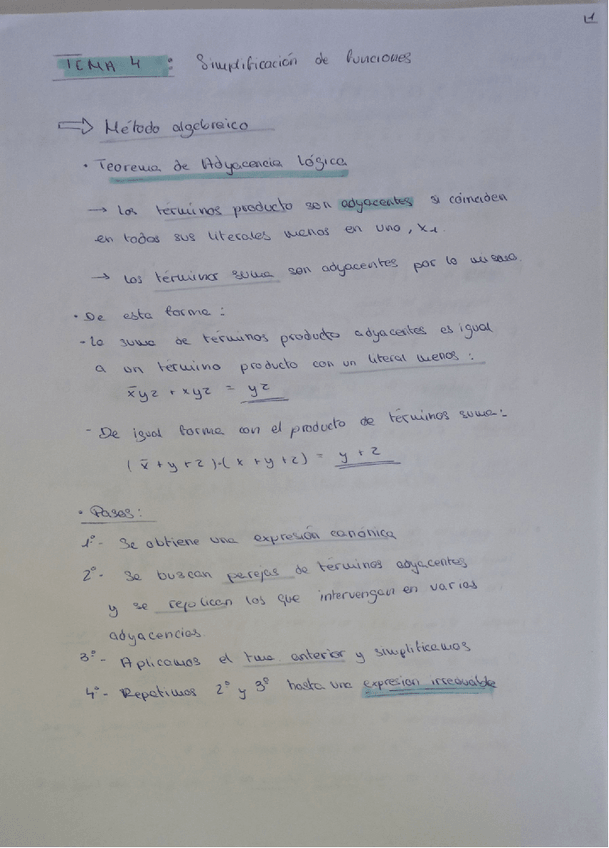 1
TEMA 4 : Simplificación de funciones
⇒ Método algebraico
• Teorema de Adyacencia lógica
→ Los términos producto son adyacentes si coinciden
en todos sus literales menos en uno, x₁.
→ Los términos suma son adyacentes por lo mismo.
• De esta forma :
- La suma de términos producto adyacentes es igual
a un término producto con un literal menos :
x̄yz + xyz = yz
- De igual forma con el producto de términos suma:
(x̄ + y + z)·(x + y + z) = y + z
• Pasos :
1º- Se obtiene una expresión canónica
2º- Se buscan parejas de términos adyacentes
y se replican los que intervengan en varias
adyacencias.
3º- Aplicamos el tma anterior y simplificamos
4º- Repetimos 2º y 3º hasta una expresion